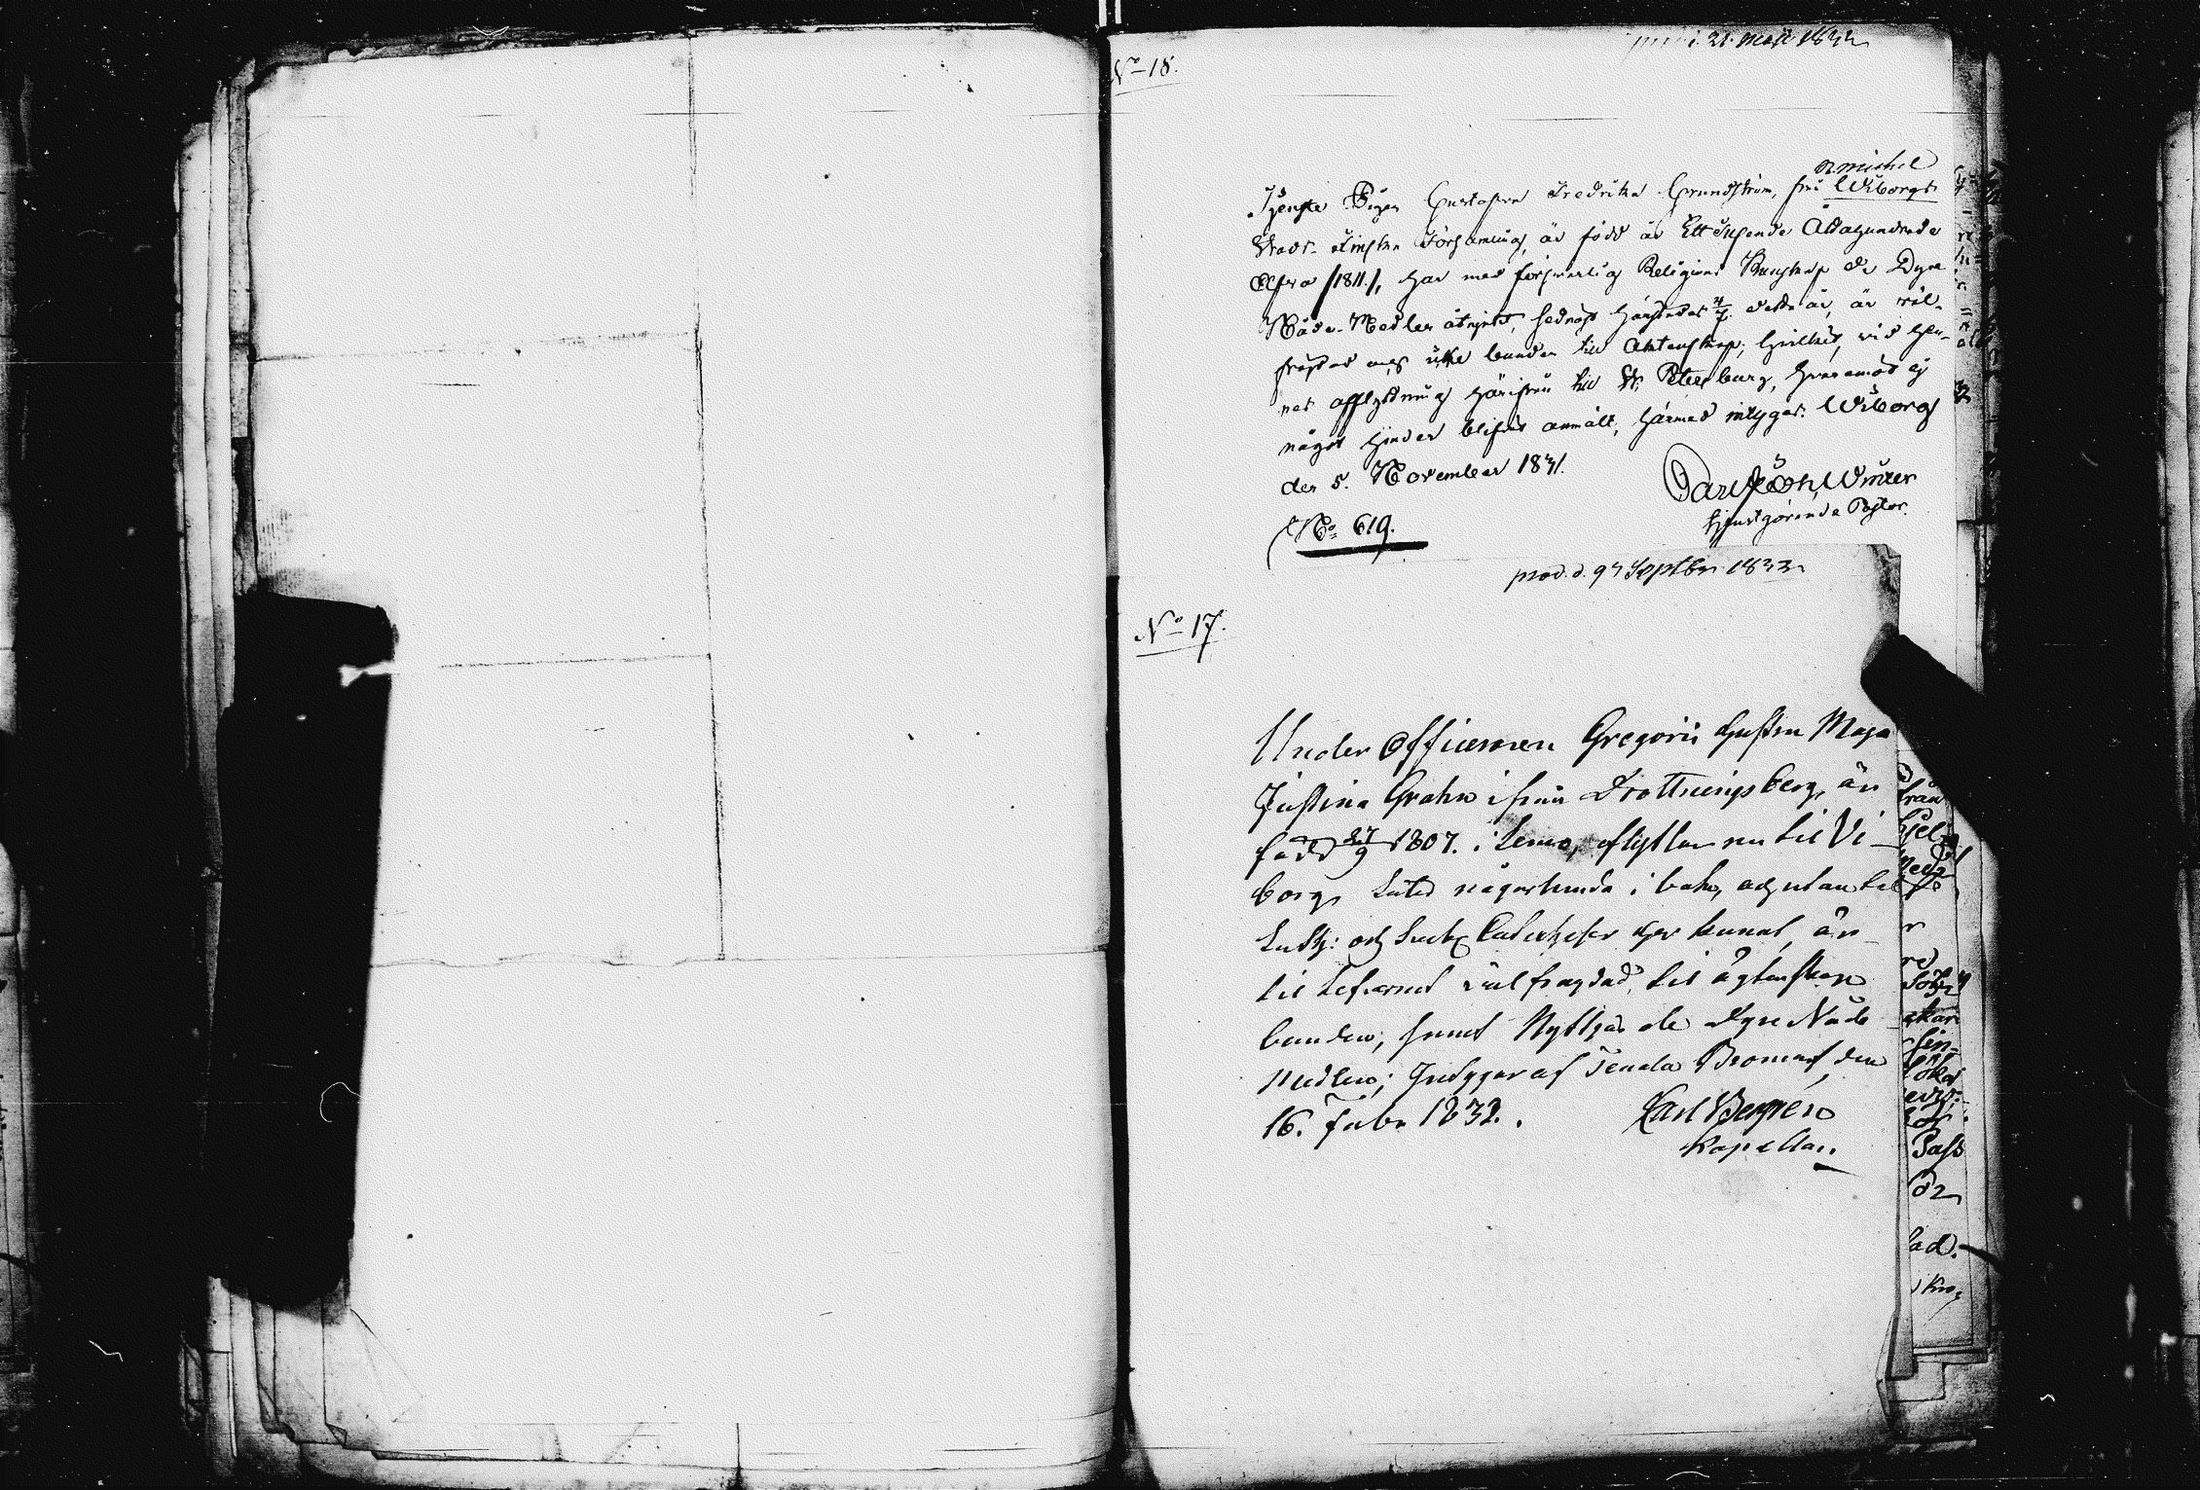 d. 21. Maji 1832
No 18.
St Michel
Tjenste Pigan Gustafva Fredrika Grundström, från Wiborgs
Stads Finska Församling, är född år Ett tusende Åttahundrade
Elfva /1811./, har med försvarlig Religions Kunskap de Dyra
Nåde-Medlen åtnjutit, sednast härstädes 4/7 detta år, är väl-
frejdad och icke bunden till Äktenskap; hvilket, vid hen-
nes afflyttning härifrån till St. Petersburg, hvaremot ej
något hinder blifvit anmält, härmed intygas. Wiborg
den 5. November 1831.
Carl Winter
tjenstgörande Pastor.
No 619.
prod. d. 27 Septbr 1832
No 17.
Under Officeraren Gregorii hustru Maja
Justina Grahn ifrån Drottningsberg, är
född 27/9 1807. i Lemo, aflyttar nu til Vi-
borg, Läser någorlunda i bok, och utantil
Luth: och Cateches har kunnat, är
til lefvernet välfrägdad, til ägtenskap
bunden, samt Nyttjar de dyre Nåde
medlen; Intygar af Tenala Bromarf den
16. Febr 1832.
Carl Bergren
Kapellan.
från
hel
Pass
för
lad.